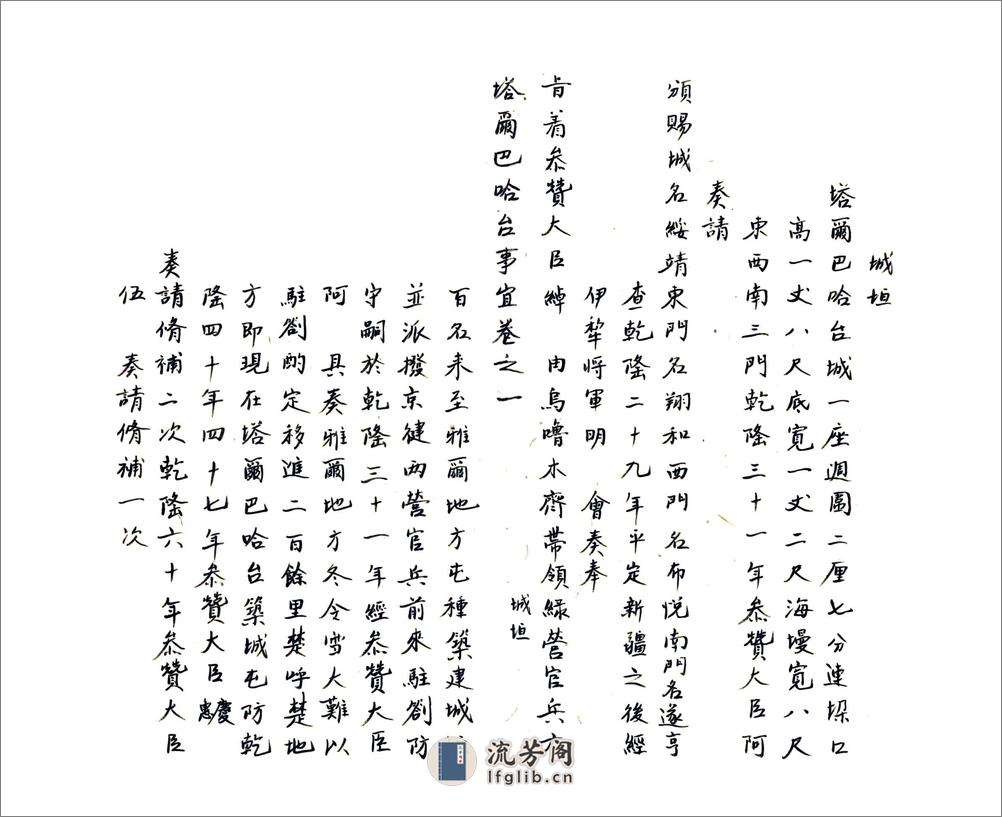 城垣
塔爾巴哈台城一座週圍二厘七分連垜口
高一丈八尺底寛一丈二尺海墁寛八尺
東西南三門乾隆三十一年叅贊大臣阿
奏請
頒賜城名綏靖東門名翔和西門名布悦南門名遂亨
查乾隆二十九年平定新疆之後經
伊犂将軍明 會奏奉
旨着叅贊大臣綽 由烏嚕木齊帶領緑營官兵六
塔爾巴哈台事宜卷之一
城垣
百名来至雅爾地方屯種築建城
並派撥京健兩營官兵前來駐劄防
守嗣於乾隆三十一年經叅贊大臣
阿 具奏雅爾地方冬令雪大難以
駐劄酌定移進二百餘里楚呼楚地
方即現在塔爾巴哈台築城屯防乾
隆四十年四十七年叅贊大臣慶惠
奏請脩補二次乾隆六十年叅贊大臣
伍 奏請脩補一次
流芳阁
lfglib.cn